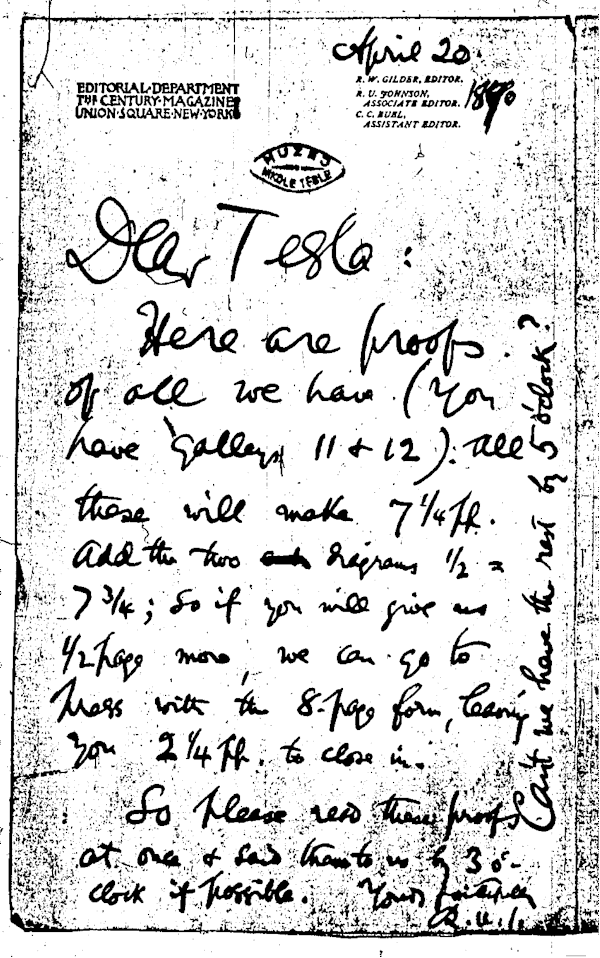 April 20.
EDITORIAL·DEPARTMENT
THE CENTURY·MAGAZINE
UNION·SQUARE·NEW·YORK
R. W. GILDER, EDITOR.
R. U. JOHNSON,
ASSOCIATE EDITOR.
C. C. BUEL,
ASSISTANT EDITOR.
MUZEJ
NIKOLE TESLE
Dear Tesla:
Here are proofs
of all we have (you
have galleys 11 + 12). All
these will make 7 1/4 pp.
Add the two diagrams 1/2 =
7 3/4; So if you will give us
1/2 page more, we can go to
press with the 8-page form, leaving
you 2 1/4 pp. to close in.
So please read these proofs
at once & send them to us by 3 o'-
clock if possible. Yours
R.U.J.
Can't we have the rest by 5 o'clock?